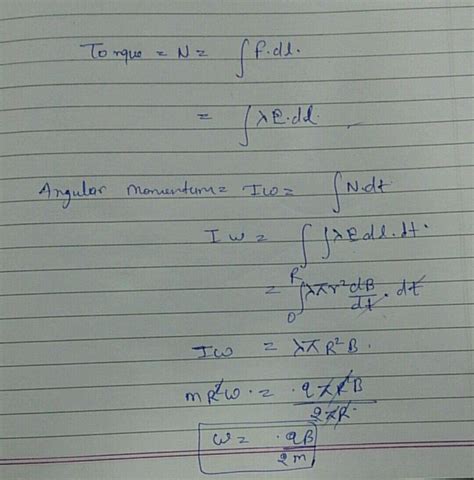 Torque = N = ∫ F.dl.
= ∫ λE.dl.
Angular momentum = Iω = ∫ N.dt
Iω = ∫ ∫ λE dl. dt.
= ∫₀ᴿ λπr² dB/dt . dt
Iω = λπR²B.
mR²ω . = . qπR²B / 2πR.
ω = . qB / 2m